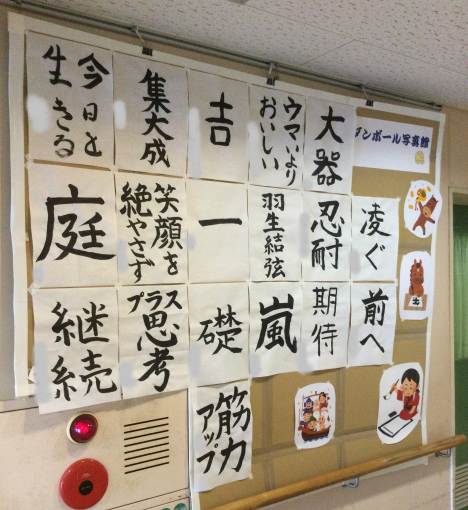 今日を
生きる
集大成
吉
ウマいより
おいしい
大器
ダンボール写真館
庭
笑顔を
絶やさず
一
羽生結弦
忍耐
凌ぐ
継続
プラス
思考
礎
嵐
期待
前へ
筋力
アップ